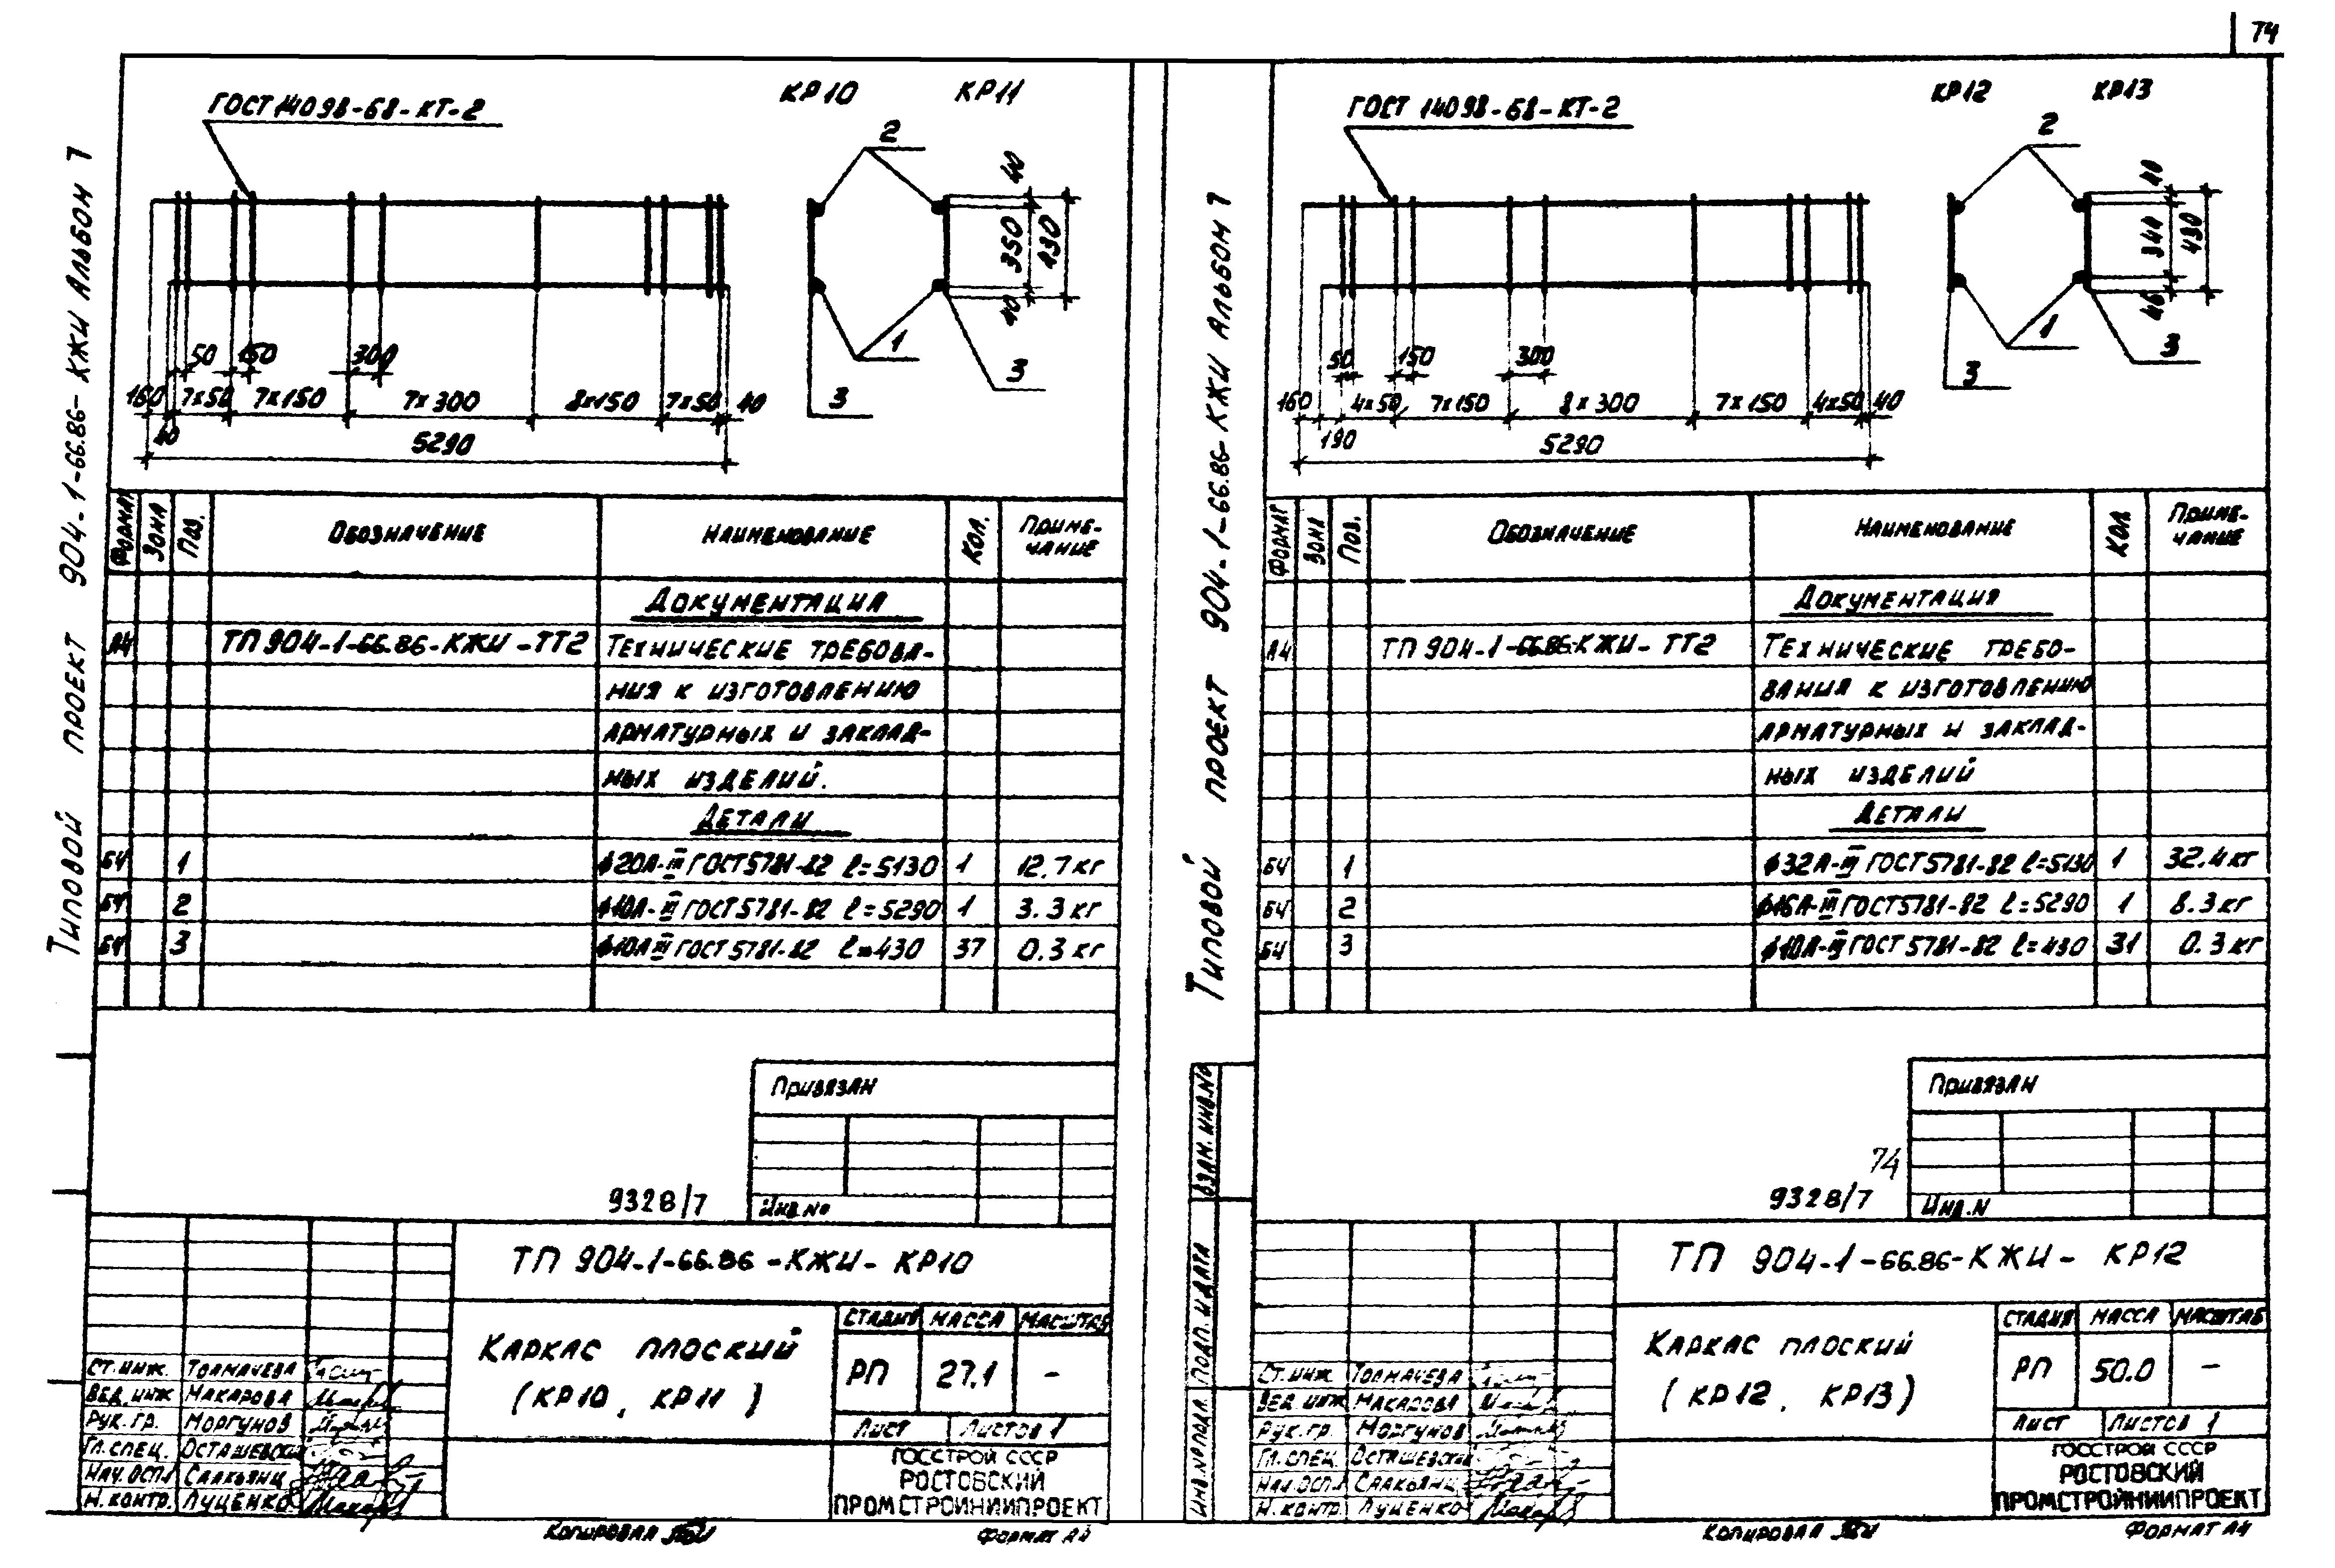 74
Типовой проект 904-1-66.86-КЖИ Альбом 7
ГОСТ 14098-68-КТ-2
КР10 КР11
2
40
350
430
40
1
3
3
50 150 300
160 7х50 7х150 7х300 8х150 7х50 40
40
5290
Формат Зона Поз. Обозначение Наименование Кол. Приме-
чание
Документация
А4 ТП 904-1-66.86-КЖИ-ТТ2 Технические требова-
ния к изготовлению
арматурных и заклад-
ных изделий.
Детали
БЧ 1 ф20А-III ГОСТ 5781-82 l=5130 1 12.7кг
БЧ 2 ф10А-III ГОСТ 5781-82 l=5290 1 3.3кг
БЧ 3 ф10АIII ГОСТ 5781-82 l=430 37 0.3кг
Привязан
9328/7
Инв.№
ТП 904-1-66.86-КЖИ-КР10
Каркас плоский
(КР10, КР11)
Стадия Масса Масштаб
РП 27.1 -
Лист Листов 1
Ст.инж. Толмачева
Вед.инж Макарова
Рук.гр. Моргунов
Гл.спец. Осташевский
Нач.ОСП Саакьянц
Н.контр. Луценко
ГОССТРОЙ СССР
РОСТОВСКИЙ
ПРОМСТРОЙНИИПРОЕКТ
Копировал
Формат А4
Типовой проект 904-1-66.86-КЖИ Альбом 7
ГОСТ 14098-68-КТ-2
КР12 КР13
2
40
344
430
46
1
3
3
50 150 300
160 4х50 7х150 8х300 7х150 4х50 40
190
5290
Формат Зона Поз. Обозначение Наименование Кол Приме-
чание
Документация
А4 ТП 904-1-66.86-КЖИ-ТТ2 Технические требо-
вания к изготовлению
арматурных и заклад-
ных изделий
Детали
БЧ 1 ф32А-III ГОСТ 5781-82 l=5130 1 32.4кг
БЧ 2 ф16А-III ГОСТ 5781-82 l=5290 1 8.3кг
БЧ 3 ф10А-III ГОСТ 5781-82 l=430 31 0.3кг
Привязан
74
9328/7
Инв.N
Взам.инв.№
Подп. и дата
Инв.№ подл.
ТП 904-1-66.86-КЖИ-КР12
Каркас плоский
(КР12, КР13)
Стадия Масса Масштаб
РП 50.0 -
Лист Листов 1
Ст.инж Толмачева
Вед.инж Макарова
Рук.гр. Моргунов
Гл.спец. Осташевский
Нач.ОСП Саакьянц
Н.контр. Луценко
ГОССТРОЙ СССР
РОСТОВСКИЙ
ПРОМСТРОЙНИИПРОЕКТ
Копировал
Формат А4